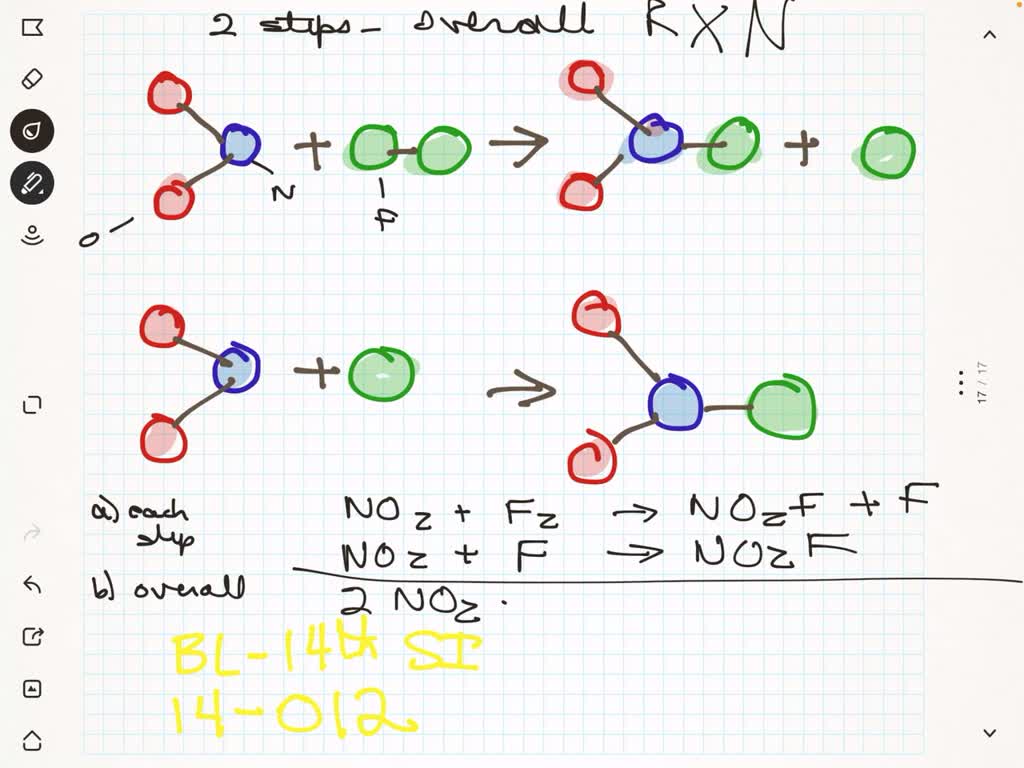 2 steps - overall RXN
N
F
O
a) each step
NO2 + F2 → NO2F + F
NO2 + F → NO2F
b) overall
2 NO2 .
BL-14th SI
14-012
17 / 17